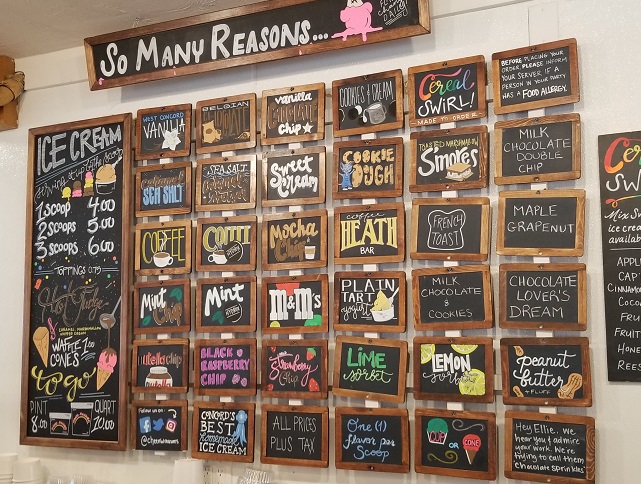 SO MANY REASONS...
ICE CREAM
Serving it up by the scoop
1 SCOOP 4.00
2 SCOOPS 5.00
3 SCOOPS 6.00
TOPPINGS 0.75
Hot Fudge
CARAMEL, MARSHMALLOW,
WHIPPED CREAM
WAFFLE 1.00
CONES
to go
PINT QUART
8.00 20.00
WEST CONCORD
VANILLA
BELGIAN
CHOCOLATE
vanilla
chip
COOKIES & CREAM
Cereal
SWIRL!
MADE TO ORDER
BEFORE PLACING YOUR
ORDER, PLEASE INFORM
YOUR SERVER IF A
PERSON IN YOUR PARTY
HAS A FOOD ALLERGY.
SEA SALT
SEA SALT
Sweet
Cream
COOKIE
DOUGH
TOASTED MARSHMALLOW
S'mores
MILK
CHOCOLATE
DOUBLE
CHIP
COFFEE
COFFEE
Mocha
Chip
coffee
HEATH
BAR
FRENCH
TOAST
MAPLE
GRAPENUT
Mint Chip
Mint
M&M's
PLAIN
TART
yogurt
MILK
CHOCOLATE
&
COOKIES
CHOCOLATE
LOVER'S
DREAM
nutella chip
BLACK
RASPBERRY
CHIP
Strawberry
Chip
LIME
sorbet
LEMON
sorbet
peanut
butter
+ FLUFF
Follow us on:
CONCORD'S
BEST
homemade
ICE CREAM
ALL PRICES
PLUS TAX
One (1)
flavor per
Scoop
CUP OR CONE
Hey Ellie. We
hear you & admire
your work. We're
trying to call them
"chocolate sprinkles"